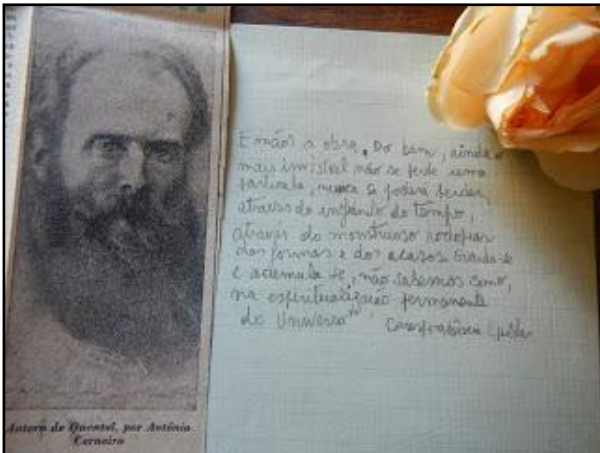 E mãos a obra. Do bem, ainda o
mais invisível não se perde uma
partícula, nunca se poderá perder,
atraves do infinito do tempo,
atraves do monstruoso rodopiar
das formas e dos acasos. Guarda-se
e acumula-se, não sabemos como,
na espiritualização permanente
do Universo"
Antero de Quental, por António
Carneiro